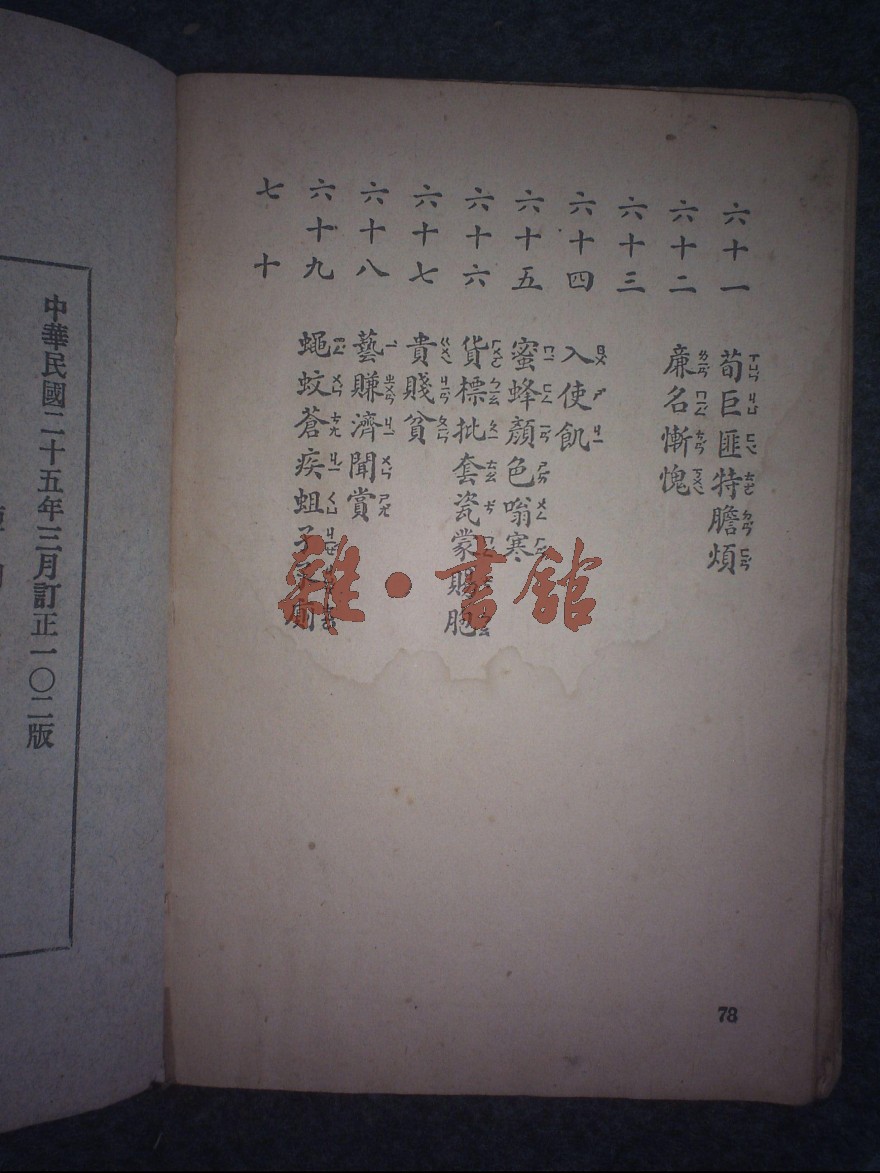 六十一 荀巨匪特膽煩
六十二 廉名慚愧
六十三
六十四 入使飢
六十五 蜜蜂顏色嗡寒
六十六 貨標批套瓷蒙賜胞
六十七 貴賤貧
六十八 藝賺濟聞賞
六十九 蠅蚊蒼疾蛆孑廁
七十
78
雜·書館
中華民國二十五年三月訂正一〇二版